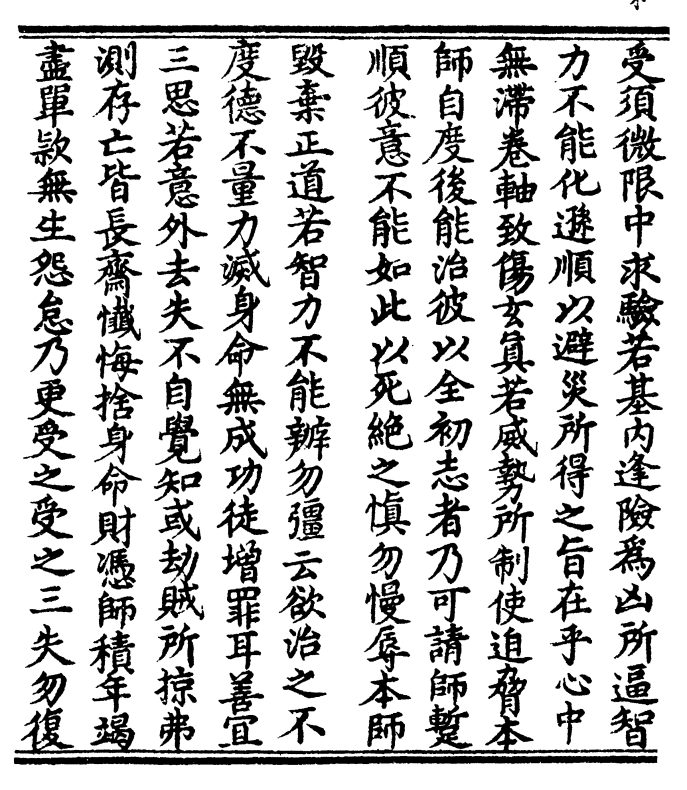 受須微限中求驗若基內逢險爲凶所逼智
力不能化遜順以避災所得之旨在乎心中
無滯卷軸致傷玄眞若威勢所制使迫脅本
師自度後能治彼以全初志者乃可請師蹔
順彼意不能如此以死絕之愼勿慢辱本師
毀棄正道若智力不能辦勿彊云欲治之不
度德不量力滅身命無成功徒增罪耳善冝
三思若意外去失不自覺知或劫賊所掠弗
測存亡皆長齋懺悔捨身命財憑師積年竭
盡單款無生怨怠乃更受之受之三失勿復